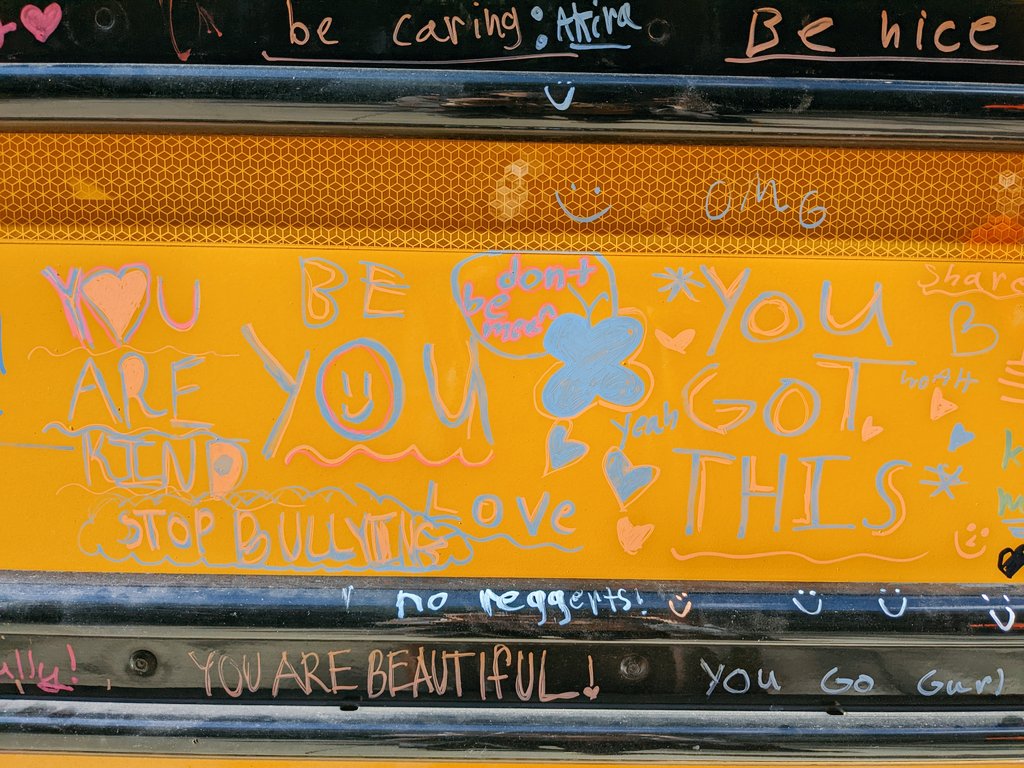 be caring: Akira
Be nice
OMG
YOU
ARE
KIND
STOP BULLYING
BE
YOU
LOVE
don't
be
mean
YOU
GOT
THIS
yeah
woah
Share
B
no reggerts!
YOU ARE BEAUTIFUL!
You Go Gurl